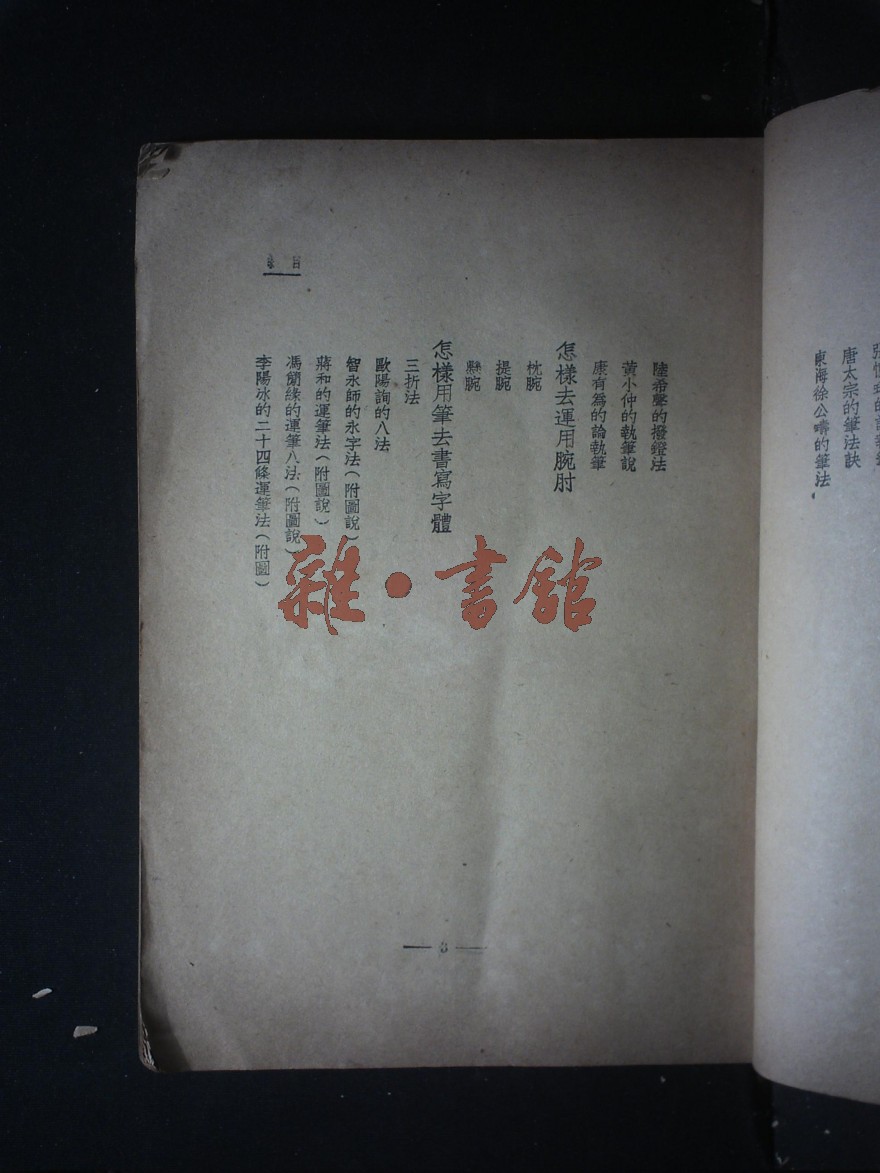 唐太宗的筆法訣
東海徐公嶹的筆法
目
陸希聲的撥鐙法
黄小仲的執筆說
康有為的論執筆
怎樣去運用腕肘
枕腕
提腕
懸腕
怎樣用筆去書寫字體
三折法
歐陽詢的八法
智永師的永字法(附圖說)
蔣和的運筆法(附圖說)
馮簡緣的運筆八法(附圖說)
李陽冰的二十四條運筆法(附圖)
雜·書館